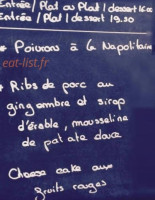 Entrée / Plat ou Plat / dessert 16.00
Entrée / Plat / dessert 19.50
* Poivrons à la Napolitaine
eat-list.fr
* Ribs de porc au
gingembre et sirop
d'érable, mousseline
de patate douce
Cheese cake aux
fruits rouges